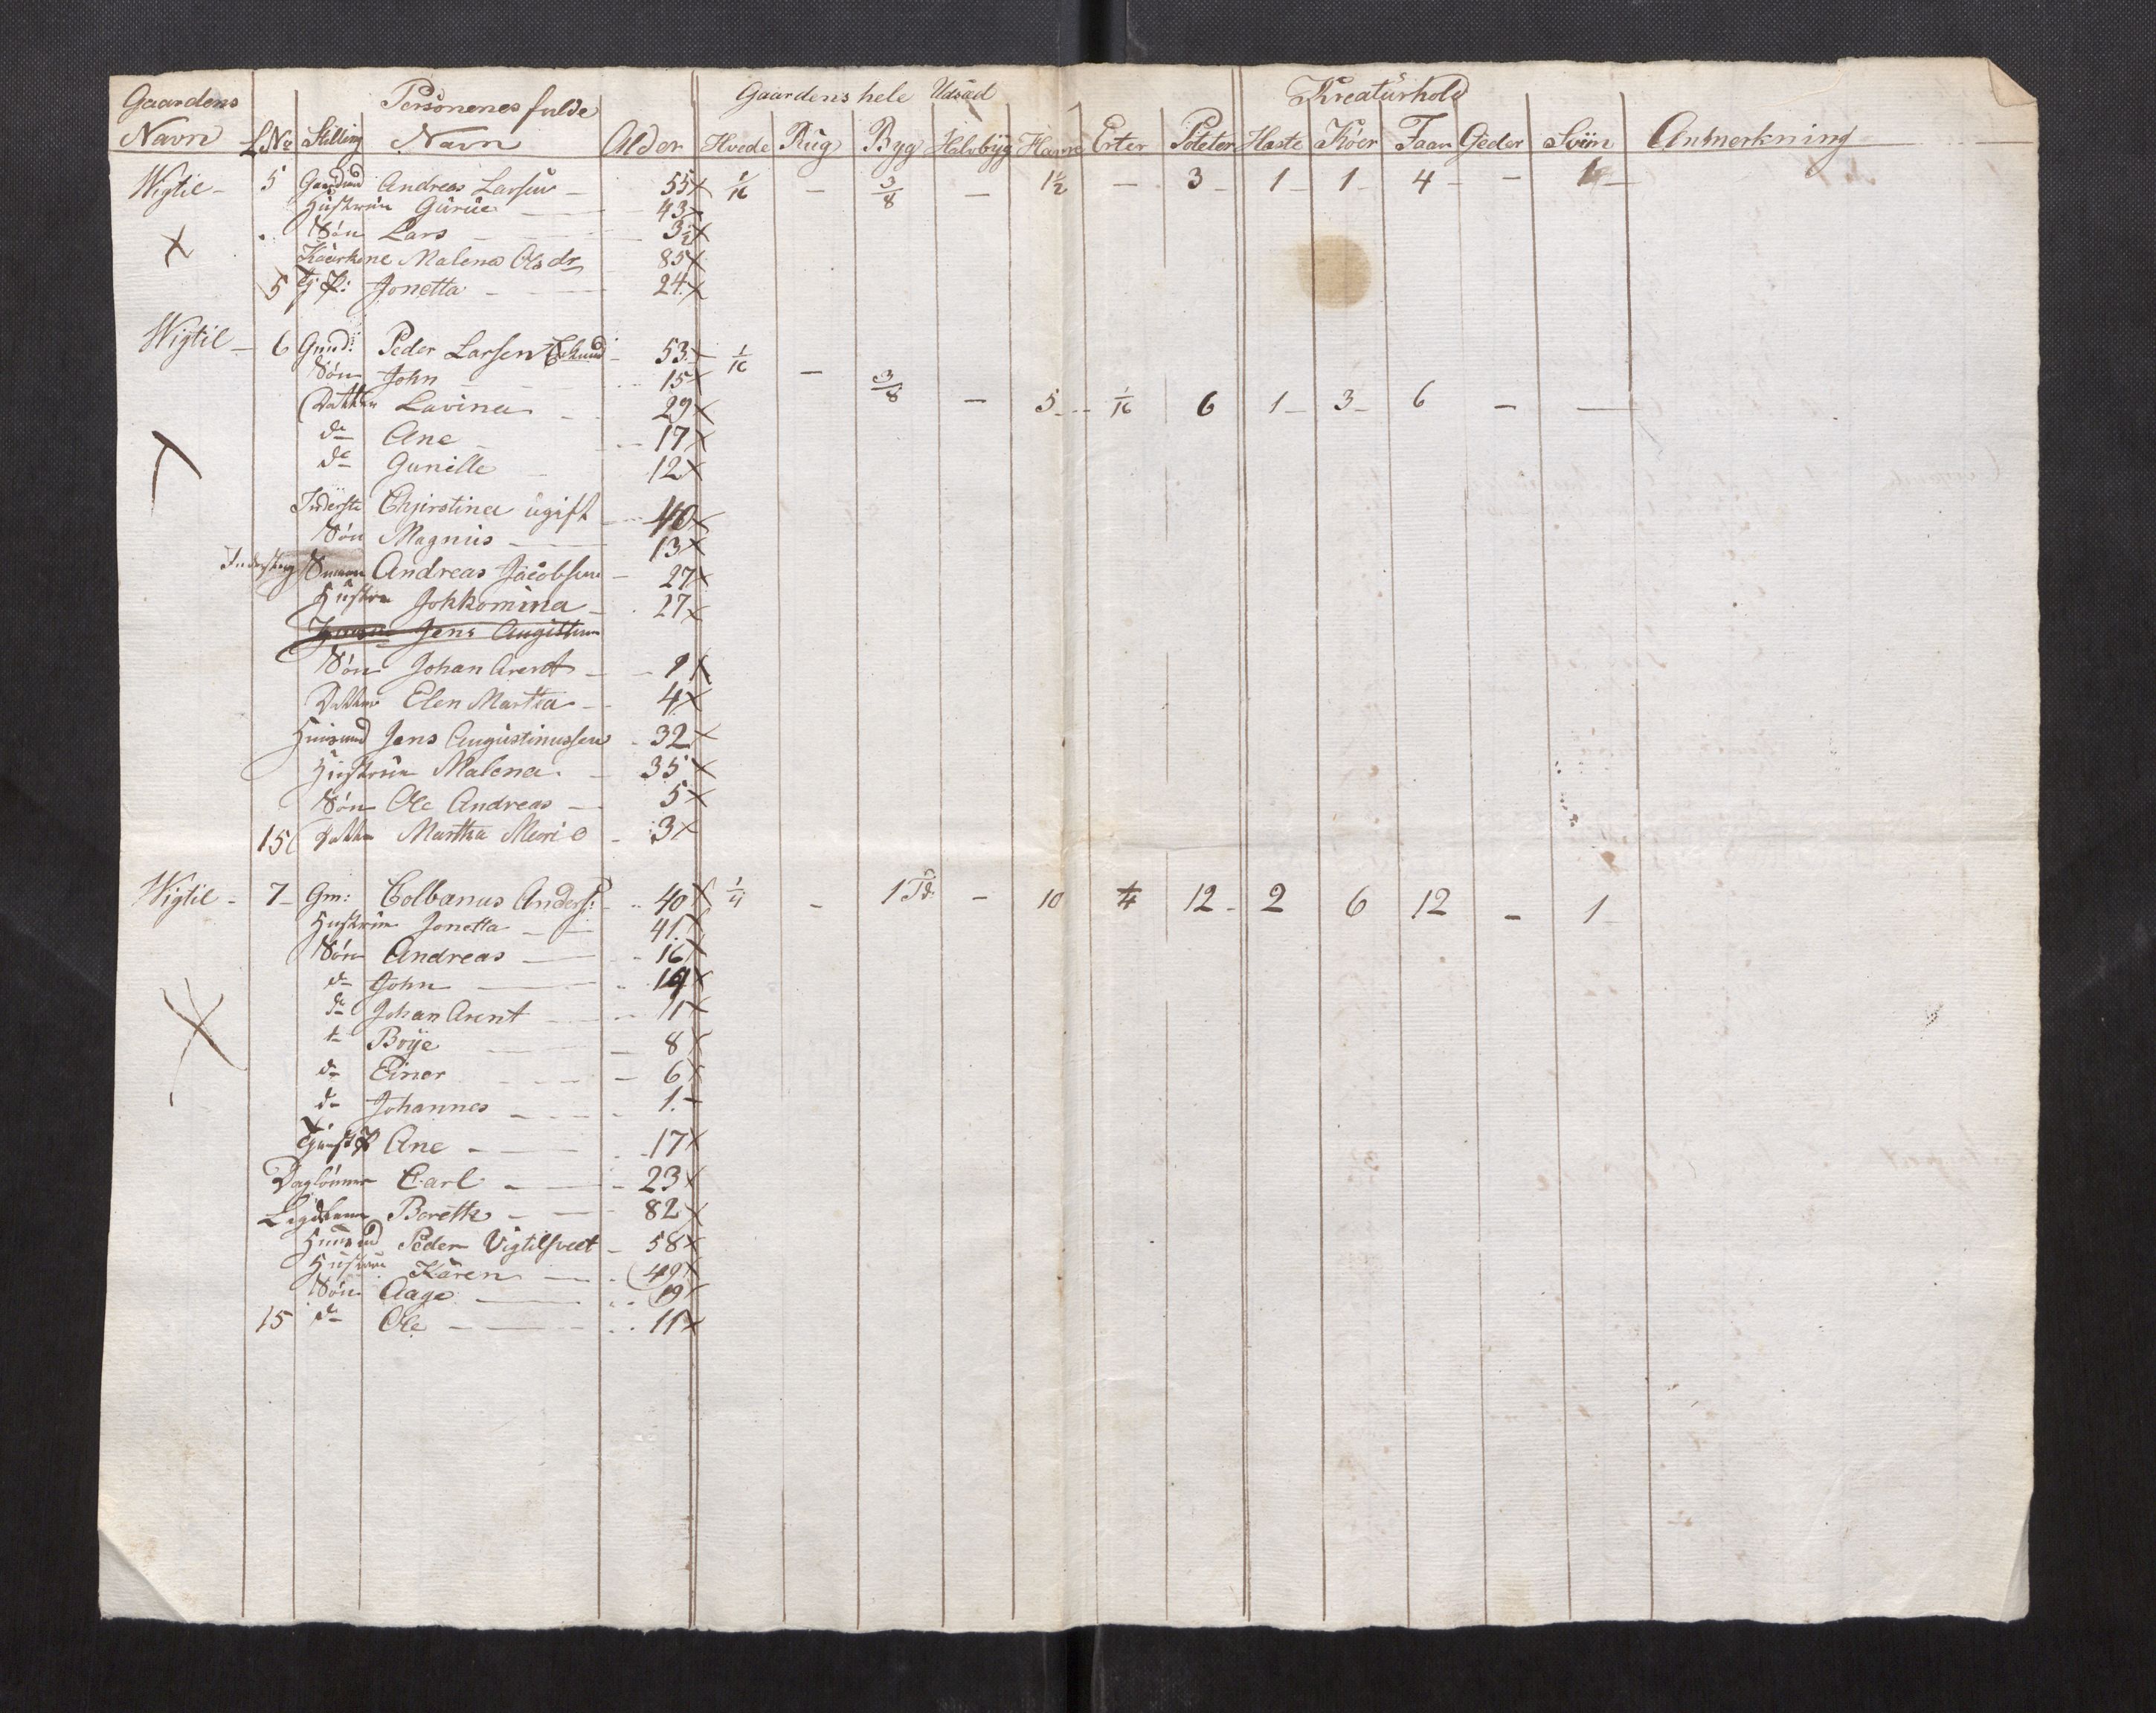 Gaardens Personenes fulde Gaardens hele Udsæd Kreaturhold
Navn LNo Stilling Navn Alder Hvede Rug Byg Halvbyg Havre Erter Poteter Heste Kőer Faar Geder Sviin Anmerkning
Wigtil - 5 Andreas Larsen - 55 x 1/16 - 3/8 - 1 1/2 - 3 - 1 - 1 - 4 - - 1 -
Hustrue Gurüe - 43 x
Søn Lars - 3 1/2 x
Malena Olsdr 85 x
5 Tj. P: Jonetta - 24 x
Wigtil - 6 Gmd: Peder Larsen 53 x 1/16 - 3/8 - 5 - 1/16 6 1 - 3 - 6 - -
Søn John 15 x
Datter Lavina - 29 x
do Ane - 17 x
do Gunille 12 x
Inderste Chjirstina ugift 40 x
Søn Magnus - 13 x
Andreas Jacobsen - 27 x
Hustru Jokkomina - 27 x
Jens Augustinu
Søn Johan Arent - 9 x
Datter Elen Martha - 4 x
Huusmd Jens Augustinussen - 32 x
Hustrue Malena - 35 x
Søn Ole Andreas - 5 x
15 Datter Martha Marie - 3 x
Wigtil - 7 - Gm: Colbanus Anders: - 40 x 1/4 - 1 Td: - 10 1/4 12 - 2 6 12 - 1 -
Hustrue Jonetta - 41 x
Søn Andreas - 16 x
do John - 14 x
do Johan Arent - 11 x
do Böye - 8 x
do Einer - 6 x
do Johannes - 1. -
Tjenst P Ane - 17 x
Daglönner Carl - 23 x
Lægdslem Bereth - 82 x
Huusmd Peder Vigtilsveet - 58 x
Hustrue Karen - 49 x
Søn Aage - 19 x
15 do Ole - 11 x